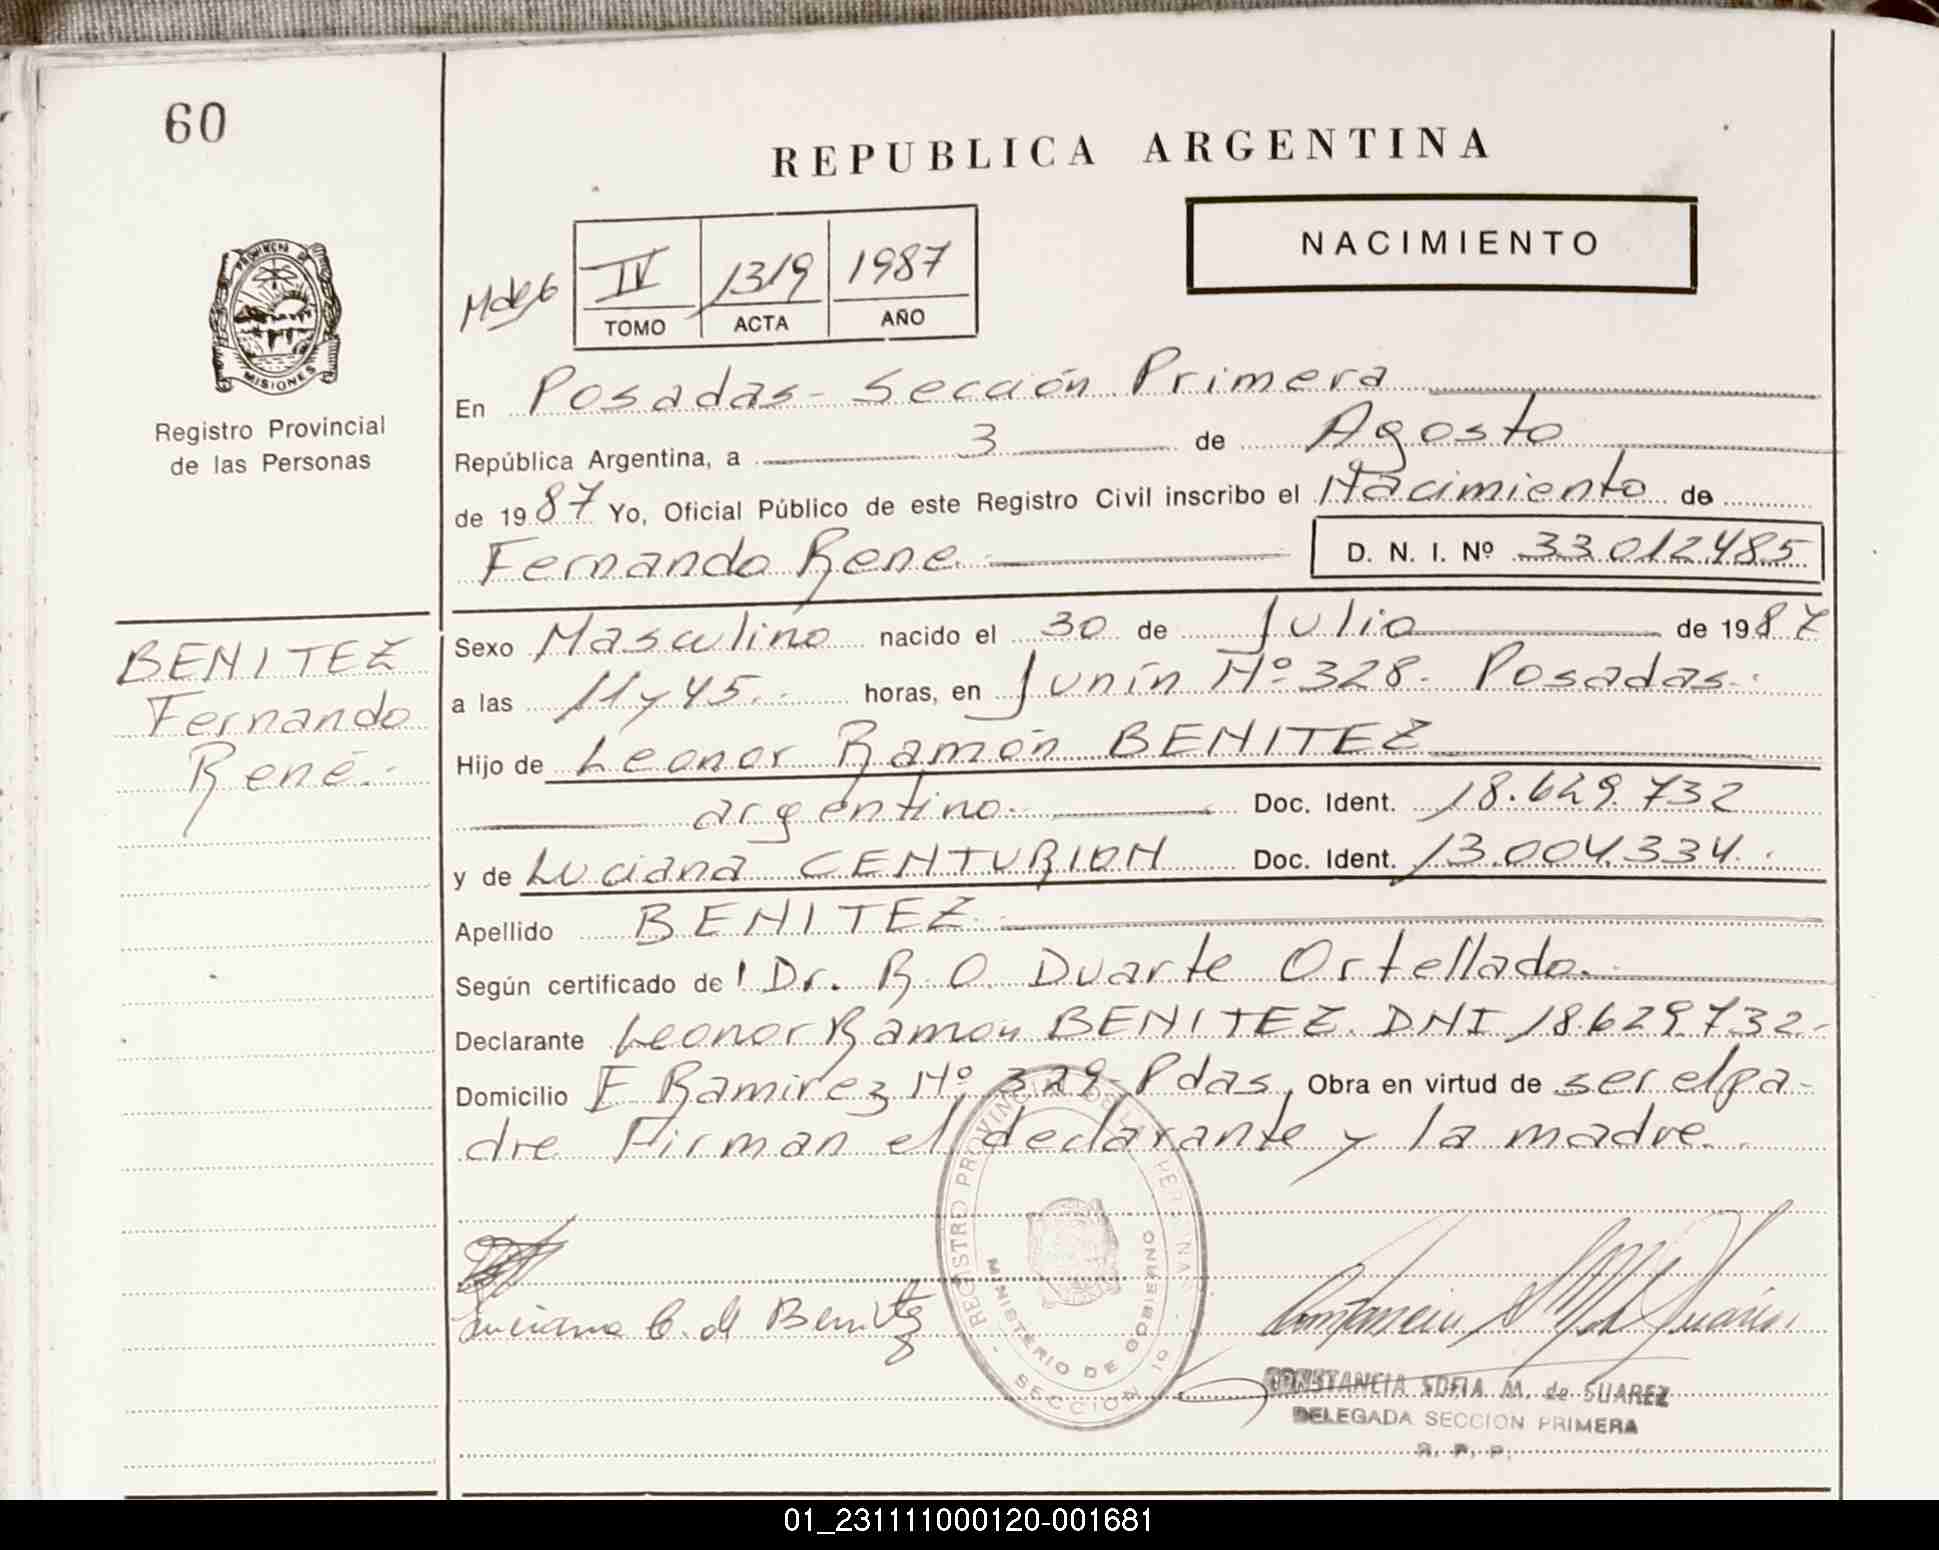 60
REPUBLICA ARGENTINA
NACIMIENTO
PROVINCIA DE
MISIONES
Registro Provincial
de las Personas
IV 1319 1987
TOMO ACTA AÑO
En Posadas - Sección Primera
República Argentina, a 3 de Agosto
de 1987 Yo, Oficial Público de este Registro Civil inscribo el Nacimiento de
Fernando Rene D. N. I. Nº 33012485
BENITEZ
Fernando
René.-
Sexo Masculino nacido el 30 de Julio de 1987
a las 11 y 45. horas, en Junín Nº 328. Posadas.
Hijo de Leonor Ramón BENITEZ
argentino. Doc. Ident. 18.629.732
y de Luciana CENTURION Doc. Ident. 13.004.334.
Apellido BENITEZ.
Según certificado de l Dr. R. O. Duarte Ortellado.
Declarante Leonor Ramón BENITEZ. DNI 18.629.732-
Domicilio F Ramirez Nº 329 Pdas, Obra en virtud de ser el pa-
dre Firman el declarante y la madre.
Luciana C. de Benitez
REGISTRO PROVINCIAL DE LAS PERSONAS
MINISTERIO DE GOBIERNO
SECCION 10
CONSTANCIA SOFIA M. de SUAREZ
DELEGADA SECCION PRIMERA
R. P. P.
01_231111000120-001681